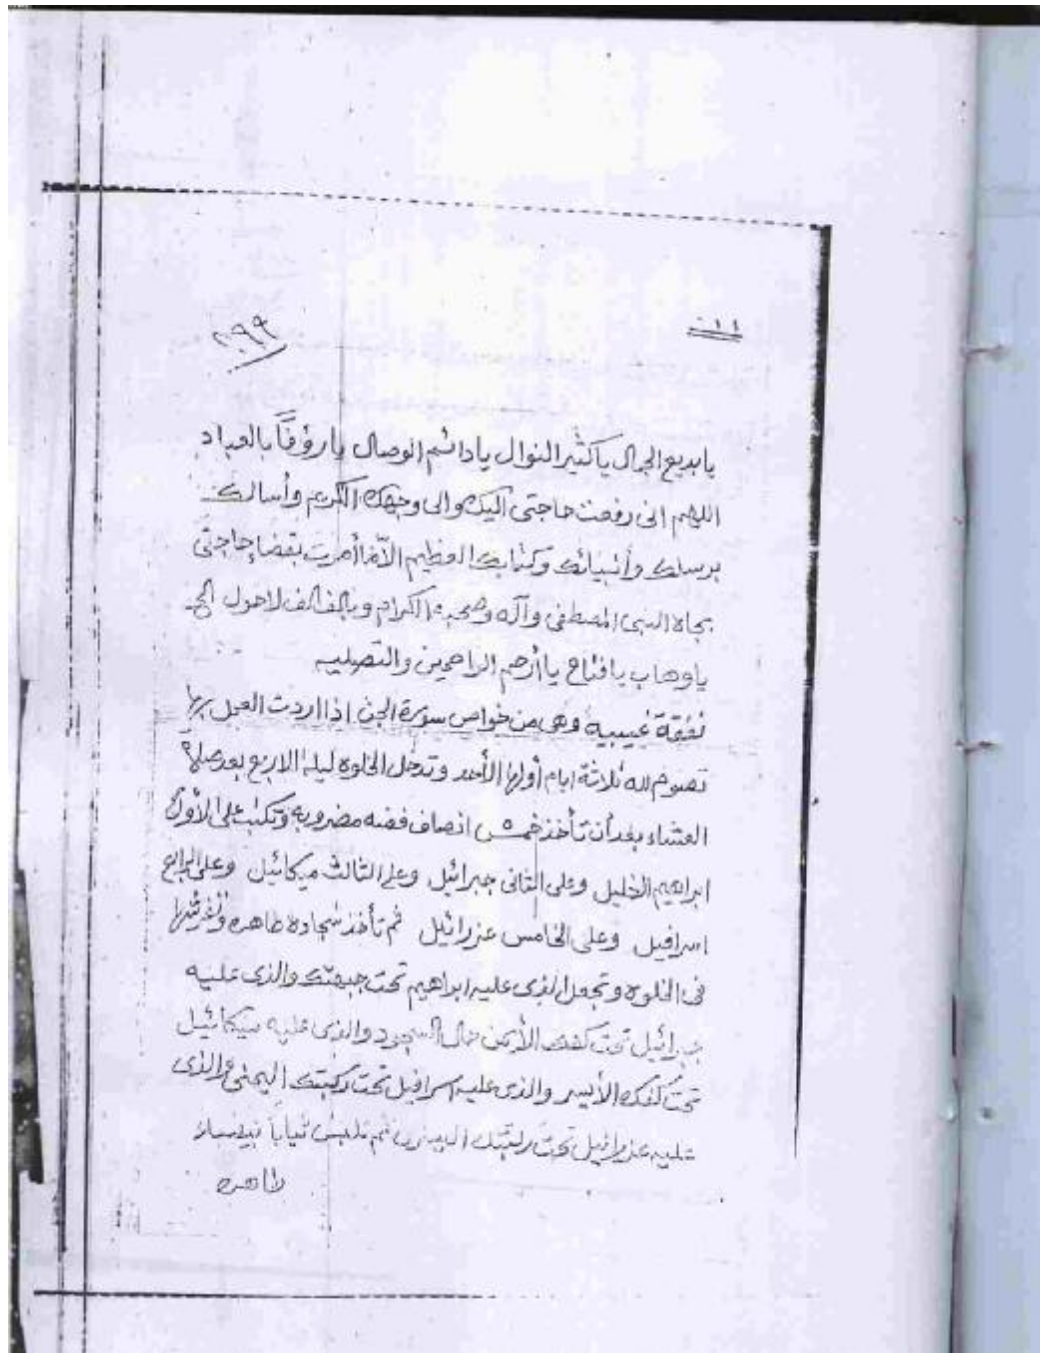 ١١
٢٩٩
يا بديع الجمال يا كثير النوال يا دائم الوصال يا رؤفاً بالعباد
اللهم انى رفعت حاجتى اليك والى وجهك الكريم وأسالك
برسلك وأنبيائك وكتابك العظيم الّا ما أمرت بقضاء حاجتى
بجاه النبى المصطفى وآله وصحبه الكرام وبالف الف لاحول الخ
يا وهاب يا فتاح يا أرحم الراحمين والتصليه
نفقة غيبيه وهى من خواص سورة الجن اذا اردت العمل بها
تصوم لله ثلاثة ايام أولها الأحد وتدخل الخلوه ليلة الاربع بعد صلاة
العشاء بعد أن تأخذ خمس انصاف فضه مضروبه وتكتب على الأول
ابراهيم الخليل وعلى الثانى جبرائيل وعلى الثالث ميكائيل وعلى الرابع
اسرافيل وعلى الخامس عزرائيل ثم تأخذ سجادة طاهره وتفرشها
فى الخلوه وتجعل الذى عليه ابراهيم تحت جبهتك والذى عليه
جبرائيل تحت كفك الأيمن حال السجود والذى عليه ميكائيل
تحت كفك الأيسر والذى عليه اسرافيل تحت ركبتك اليمنى والذى
عليه عزرائيل تحت ركبتك اليسرى ثم تلبس ثياباً بيضاء
طاهره